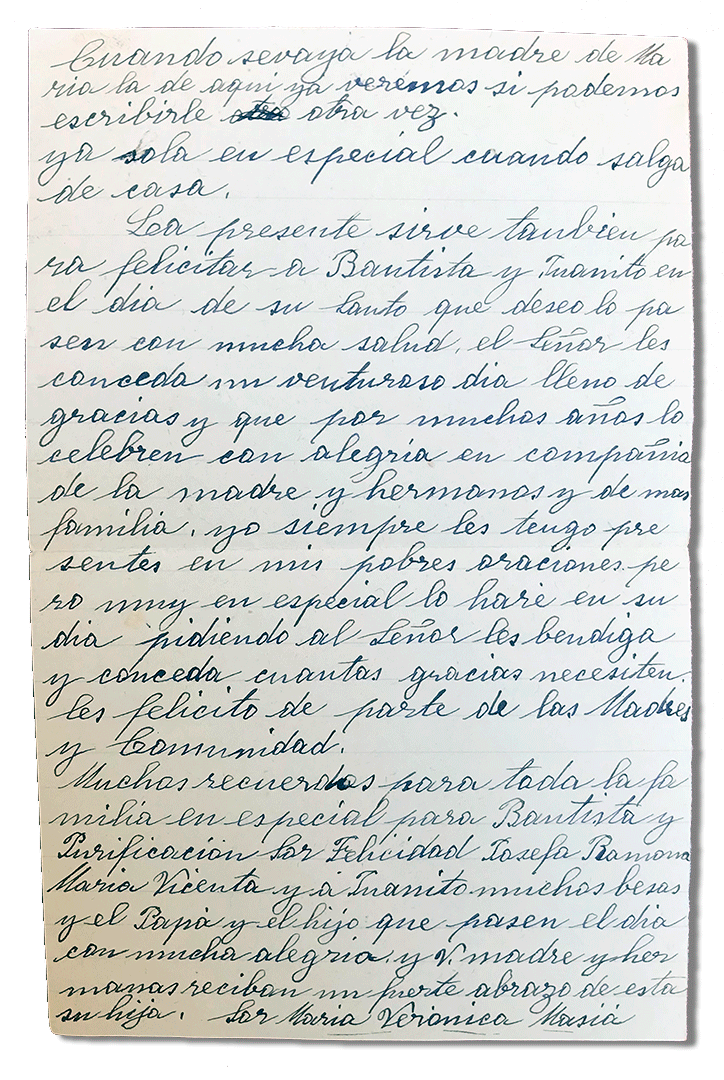 Cuando sevaya la madre de Ma
ria la de aqui ya veremos si podemos
escribirle otra vez.
ya sola en especial cuando salga
de casa.
La presente sirve tanbien pa
ra felicitar a Bautista y Juanito en
el dia de su Santo que deseo lo pa
sen con mucha salud, el Señor les
conceda un venturoso dia lleno de
gracias y que por muchos años lo
celebren con alegria en compañia
de la madre y hermanos y de mas
familia, yo siempre les tengo pre
sentes en mis pobres oraciones pe
ro muy en especial lo haré en su
dia pidiendo al Señor les bendiga
y conceda cuantas gracias necesiten.
les felicito de parte de las Madres
y Comunidad.
Muchos recuerdos para toda la fa
milia en especial para Bautista y
Purificación Sor Felicidad Josefa Ramona
Maria Vicenta y á Juanito muchos besos
y el Papá y el hijo que pasen el dia
con mucha alegria, y V. madre y her
manas reciban un fuerte abrazo de esta
su hija. Sor Maria Verónica Masiá